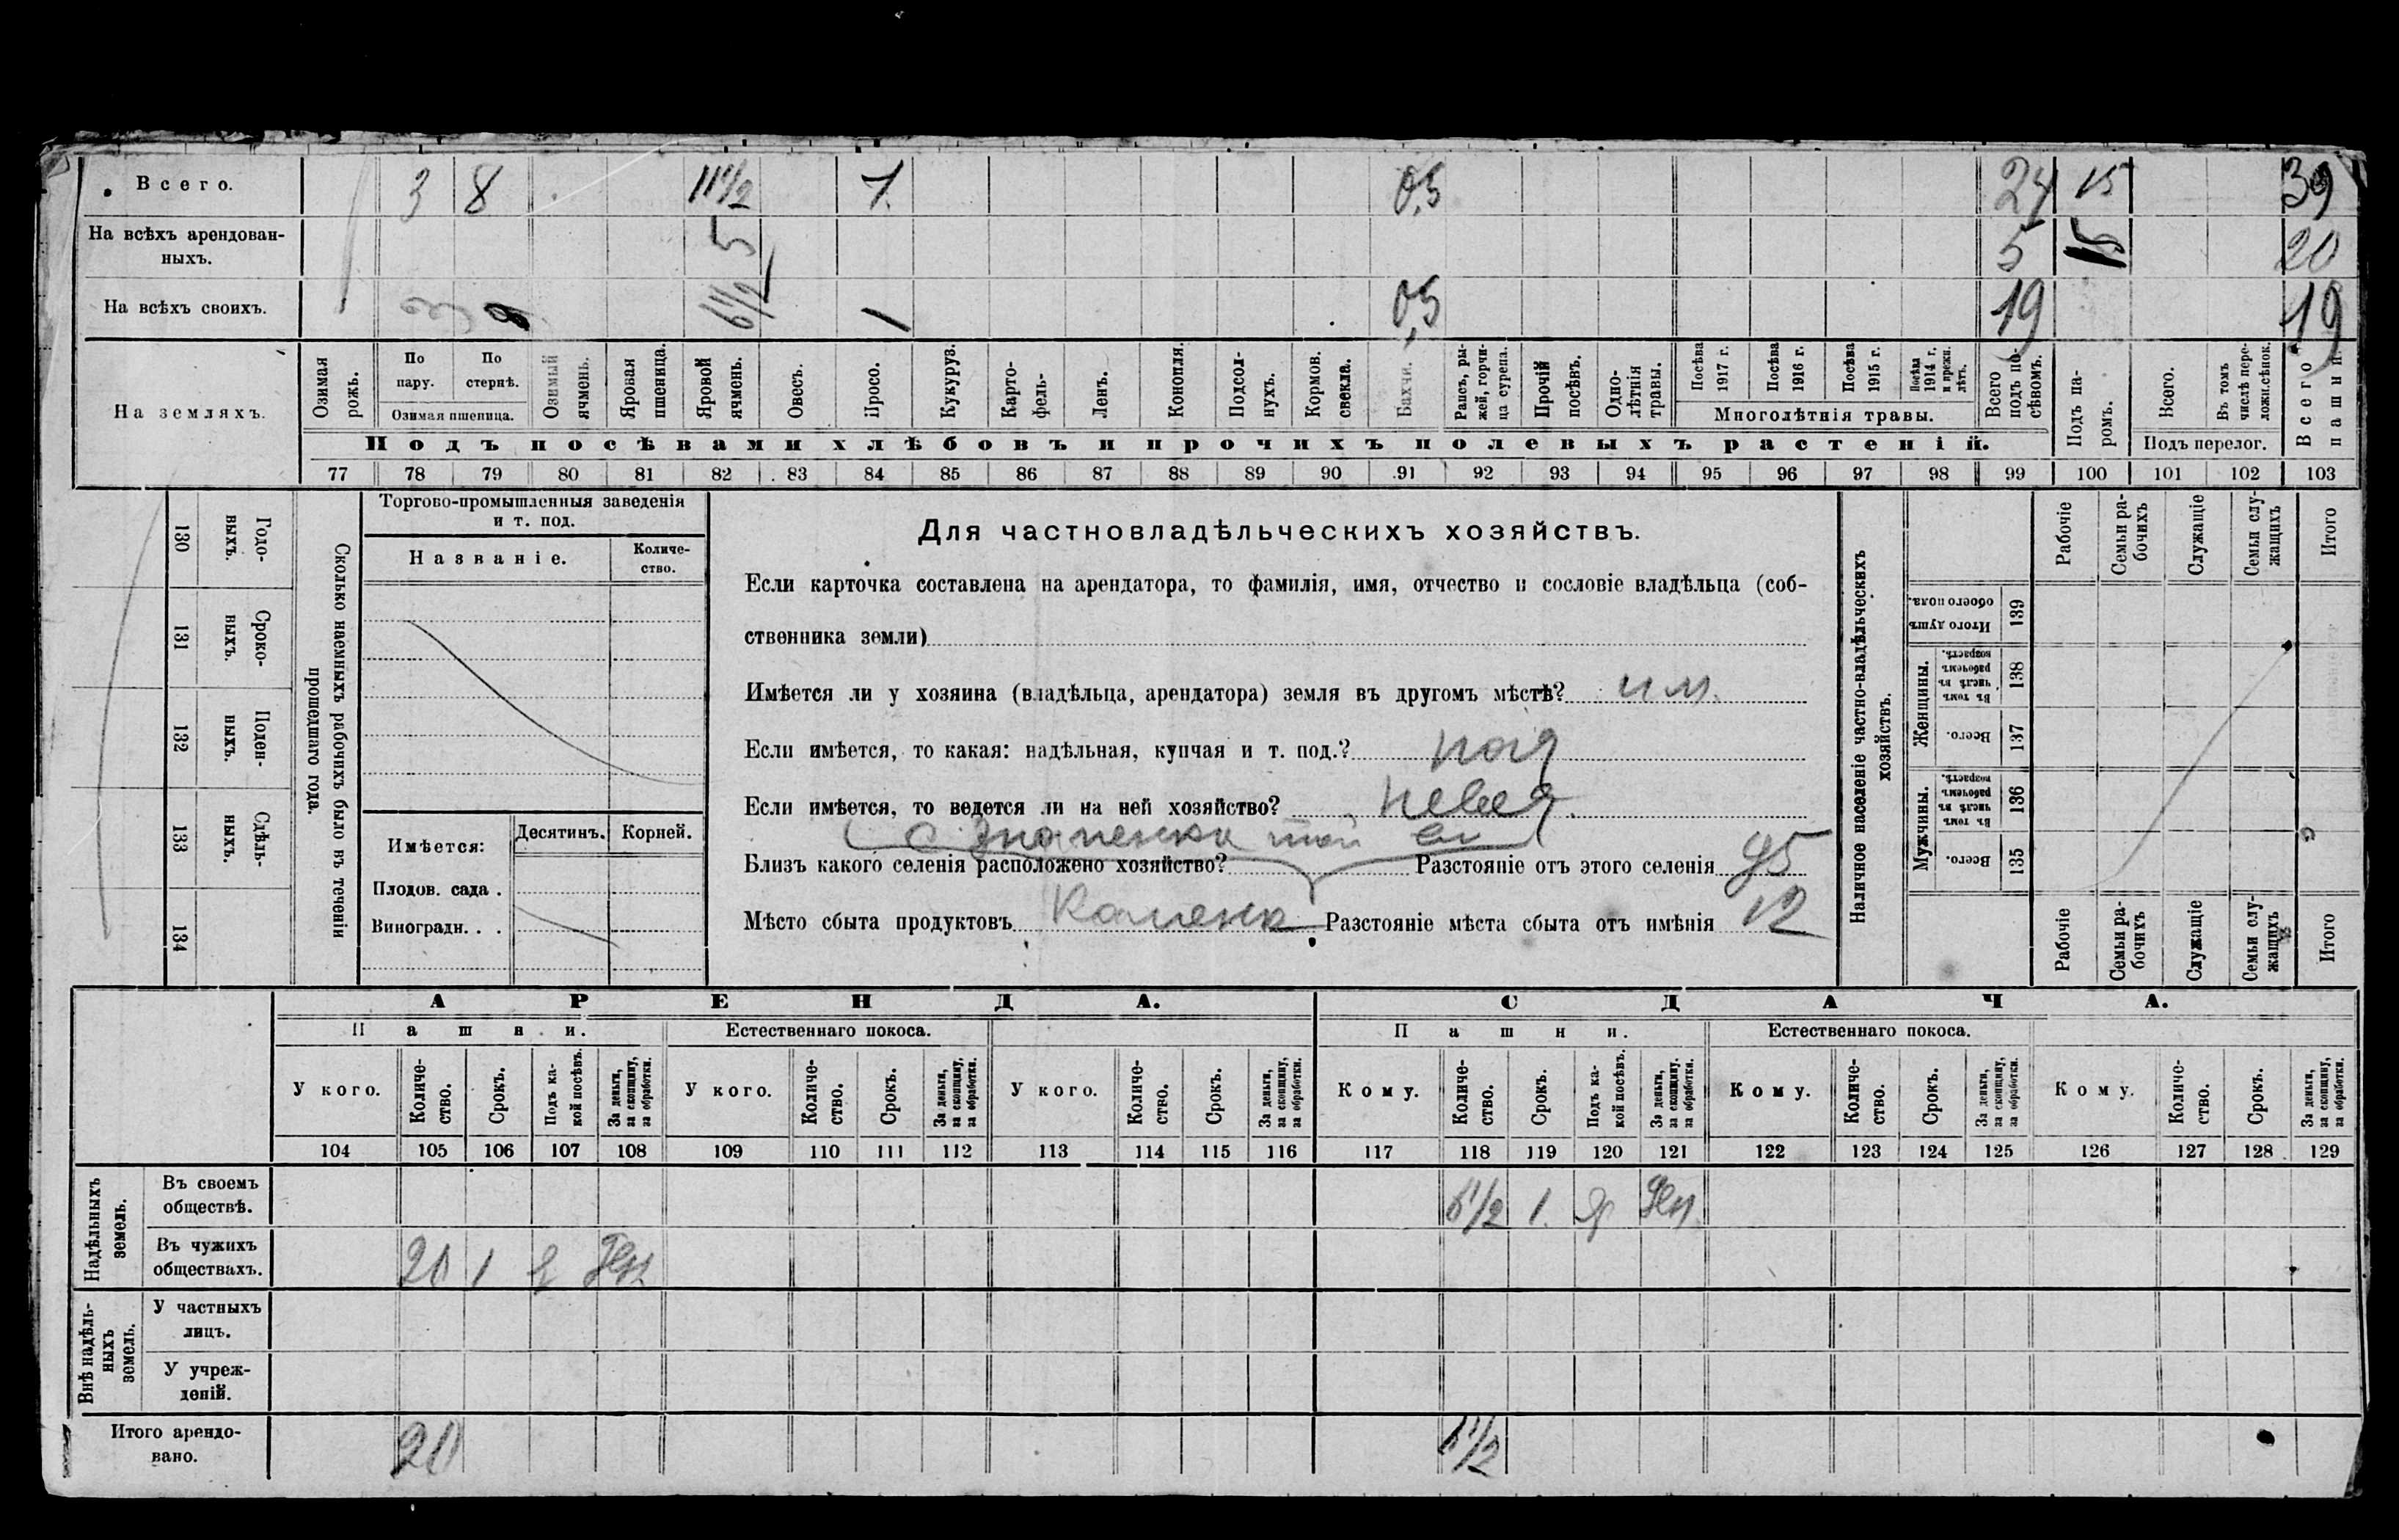 Всего. 3 8 11½ 1. 0,5 24 15 39
На всѣхъ арендован-
ныхъ. 5 5 15 20
На всѣхъ своихъ. 3 8 6½ 1 0,5 19 19
На земляхъ.
Озимая рожь.
По пару.
По стернѣ.
Озимая пшеница.
Озимый ячмень.
Яровая пшеница.
Яровой ячмень.
Овесъ.
Просо.
Кукуруз.
Карто-
фель.
Ленъ.
Конопля.
Подсол-
нухъ.
Кормов. свекла.
Бахчи.
Рапсъ, ры-
жей, горчи-
ца сурепа.
Прочій посѣвъ.
Одно-
лѣтнія травы.
Посѣва 1917 г.
Посѣва 1916 г.
Посѣва 1915 г.
Посѣва 1914 г. и прежн. лѣтъ.
Многолѣтнія травы.
Всего подъ по-
сѣвомъ.
Подъ па-
ромъ.
Всего.
Въ томъ числѣ пере-
ложн.сѣнок.
Подъ перелог.
Всего пашни.
Подъ посѣвами хлѣбовъ и прочихъ полевыхъ растеній.
77 78 79 80 81 82 83 84 85 86 87 88 89 90 91 92 93 94 95 96 97 98 99 100 101 102 103
130 Годо-
выхъ.
131 Сроко-
ныхъ.
132 Поден-
ныхъ.
133 Сдѣль-
ныхъ.
134
Сколько наемныхъ рабочихъ было въ теченіи
прошедшаго года.
Торгово-промышленныя заведенія
и т. под.
Названіе.
Количе-
ство.
Имѣется:
Десятинъ. Корней.
Плодов. сада .
Виноградн. . .
Для частновладѣльческихъ хозяйствъ.
Если карточка составлена на арендатора, то фамилія, имя, отчество и сословіе владѣльца (соб-
ственника земли)
Имѣется ли у хозяина (владѣльца, арендатора) земля въ другомъ мѣстѣ? им.
Если имѣется, то какая: надѣльная, купчая и т. под.?
Если имѣется, то ведется ли на ней хозяйство?
с Знаменка
Близъ какого селенія расположено хозяйство? Разстояніе отъ этого селенія 95
Мѣсто сбыта продуктовъ Каменка Разстояніе мѣста сбыта отъ имѣнія 12
Наличное населеніе частно-владѣльческихъ
хозяйствъ.
Рабочіе
Семьи ра-
бочихъ
Служащіе
Семьи слу-
жащихъ
Итого
Итого душъ обоего пола. 139
Женщины.
Въ томъ числѣ въ рабочемъ возрастѣ. 138
Всего. 137
Мужчины.
Въ томъ числѣ въ рабочемъ возрастѣ. 136
Всего. 135
Рабочіе
Семьи ра-
бочихъ
Служащіе
Семьи слу-
жащихъ
Итого
АРЕНДА. СДАЧА.
Пашни. Естественнаго покоса. Пашни. Естественнаго покоса.
У кого.
Количе-
ство.
Срокъ.
Подъ ка-
кой посѣвъ.
За деньги,
за скопщину,
за обработки.
У кого.
Количе-
ство.
Срокъ.
За деньги,
за скопщину,
за обработки.
У кого.
Количе-
ство.
Срокъ.
За деньги,
за скопщину,
за обработки.
Кому.
Количе-
ство.
Срокъ.
Подъ ка-
кой посѣвъ.
За деньги,
за скопщину,
за обработки.
Кому.
Количе-
ство.
Срокъ.
За деньги,
за скопщину,
за обработки.
Кому.
Количе-
ство.
Срокъ.
За деньги,
за скопщину,
за обработки.
104 105 106 107 108 109 110 111 112 113 114 115 116 117 118 119 120 121 122 123 124 125 126 127 128 129
Надѣльныхъ
земель.
Въ своемъ
обществѣ. 6½ 1. я Ден.
Въ чужихъ
обществахъ. 20 1 я Ден
Внѣ надѣль-
ныхъ
земель.
У частныхъ
лицъ.
У учреж-
деній.
Итого арендо-
вано. 20 6½